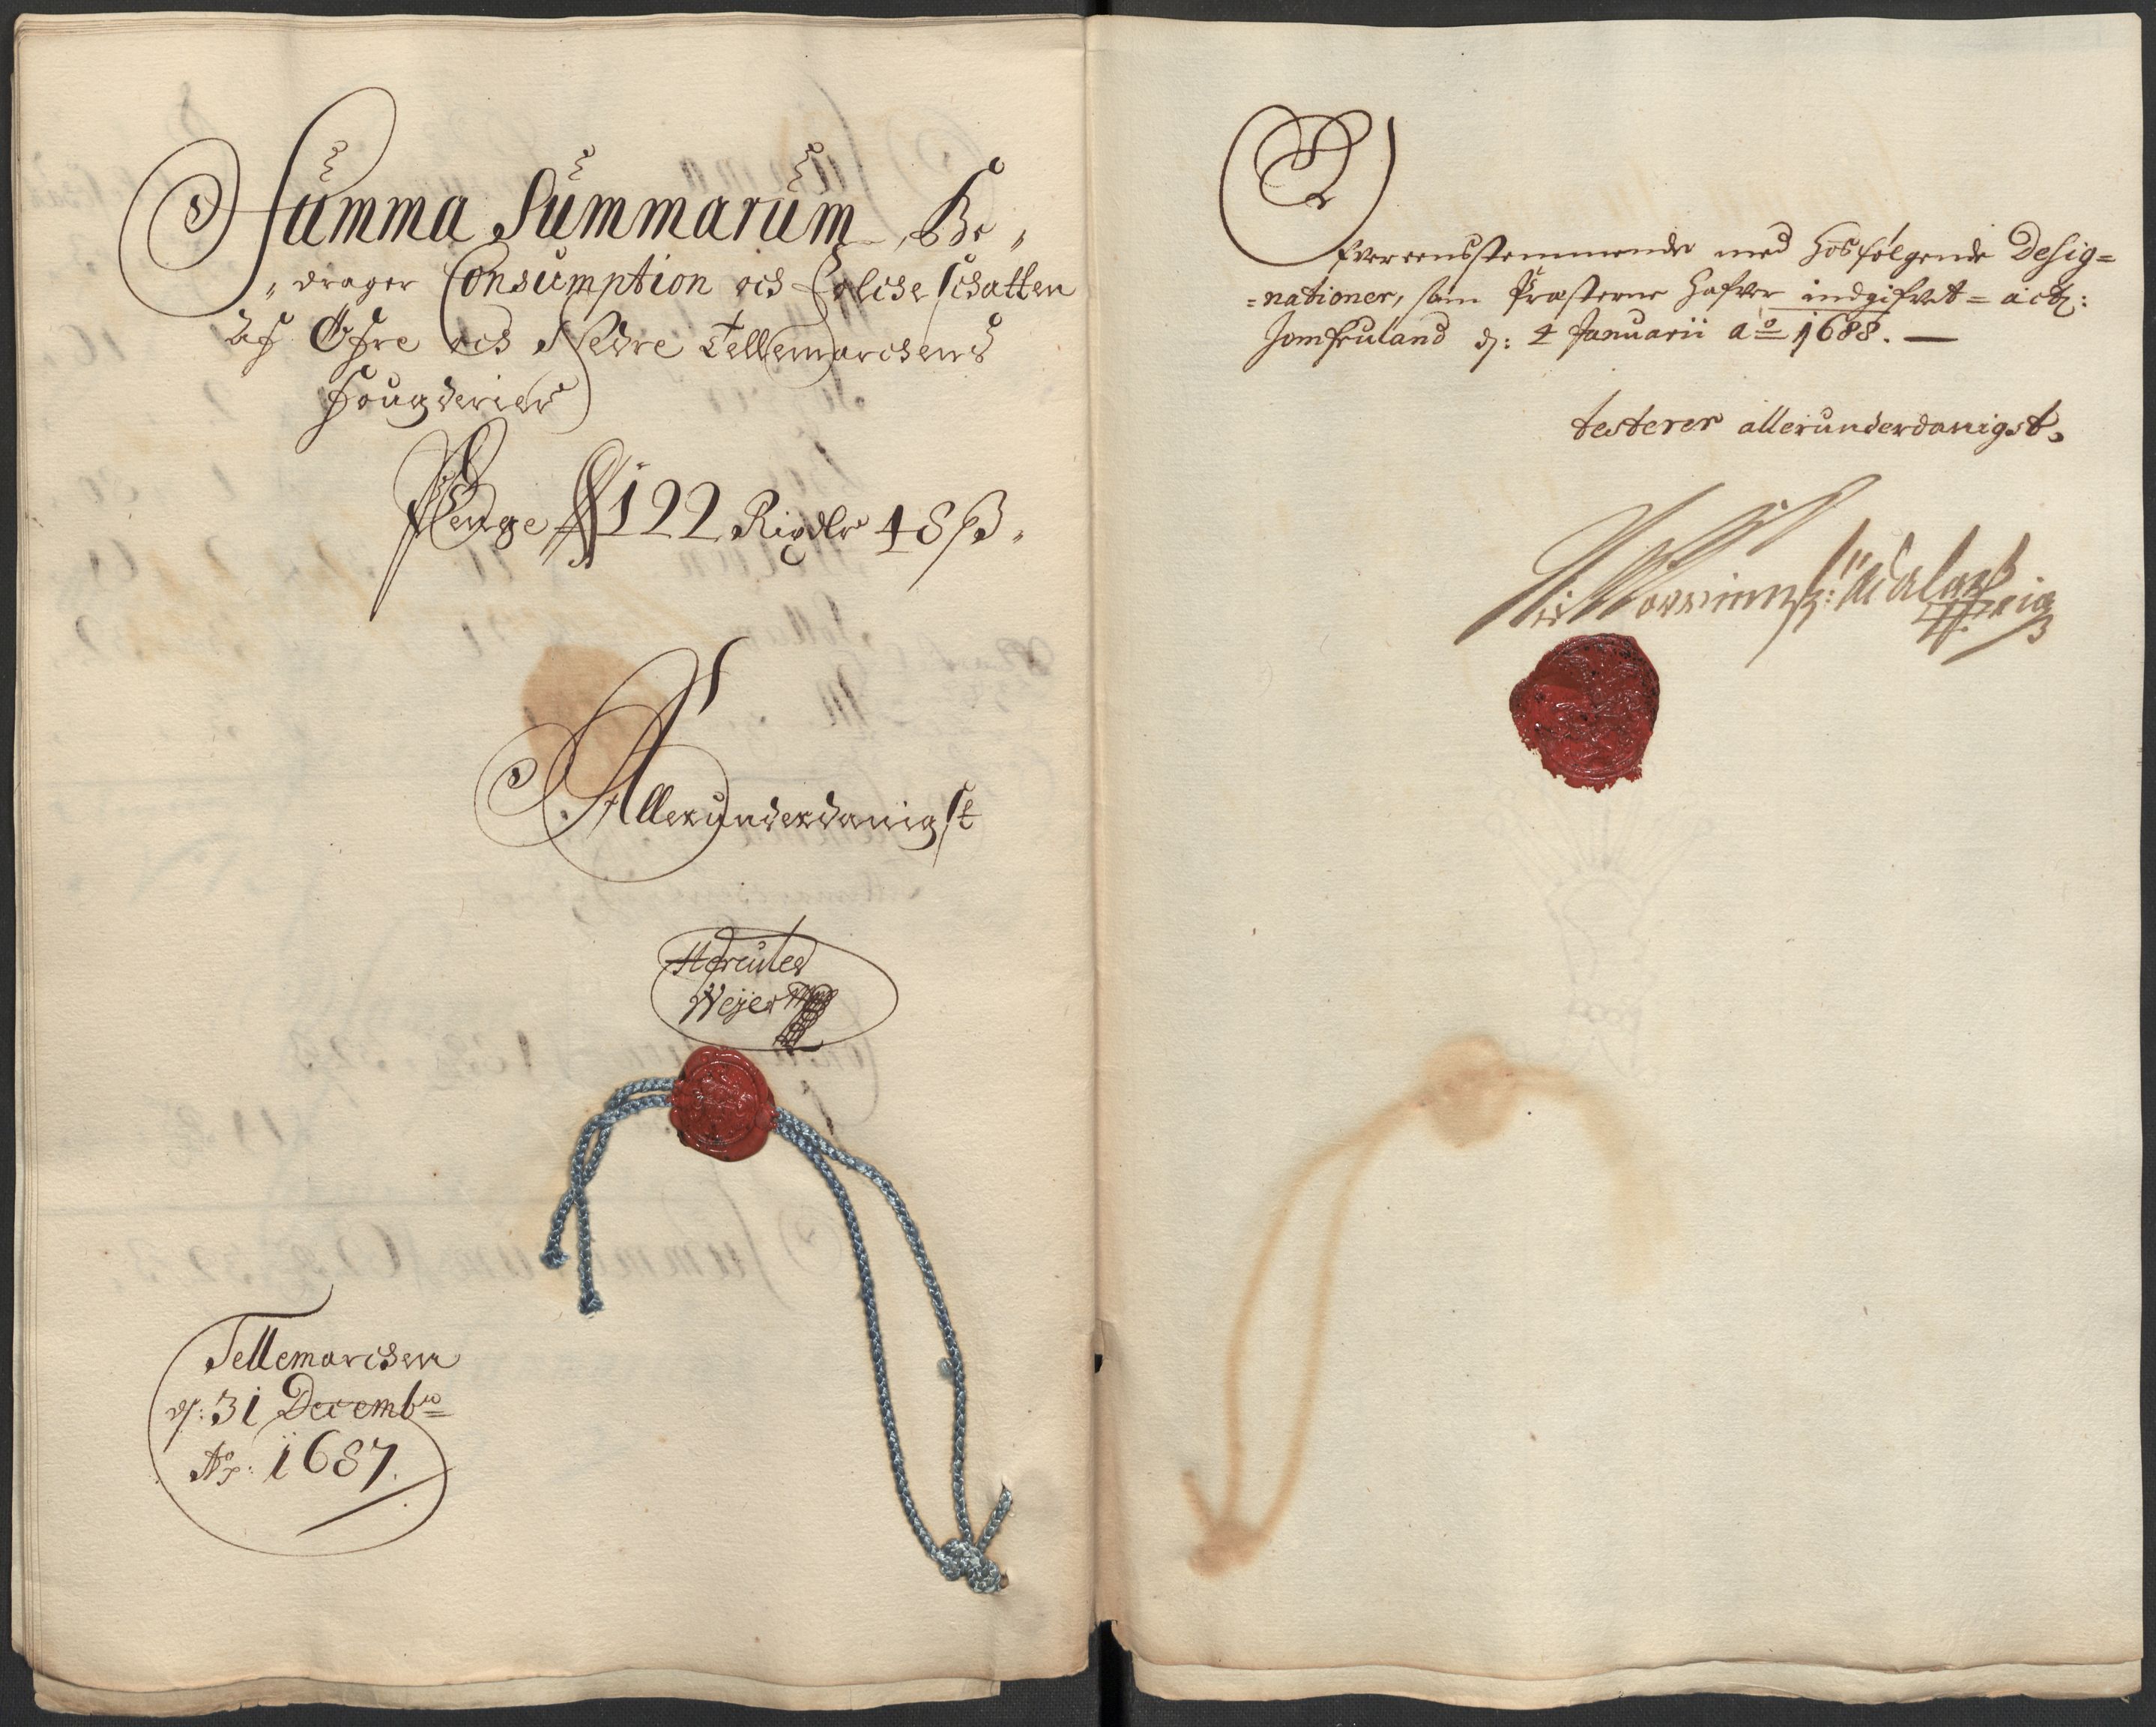 Summa Summarum Be„
„drager Consumption och Folcheschatten
af Øfre och Nedre Tellemarchens
Fougderier
Penge 122 Rixdlr 48 ß.
Allerunderdanigst
Hercules
Weyer
Tellemarchen
d: 31 Decembr
Ao: 1687.
Ofvereensstemmende med hosfølgende Desig=
=nationer, som Præsterne hafver indgifvet = act:
Jomfruland d: 4 Januarii ao 1688. —
testerer allerunderdanigst.